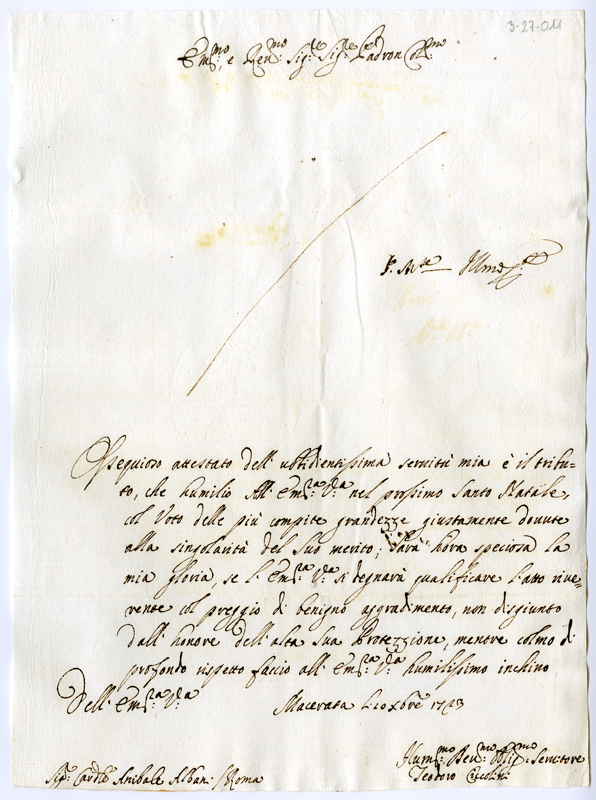 3-27-011
Em.mo, e Rev.mo Sig.re Sig.re e Padron Col.mo
Ossequioso attestato dell' ubbidientissima servitù mia è il tribu=
to, che humilio All' Em.za V.ra nel prossimo Santo Natale,
col Voto delle più compite grandezze giustamente dovute
alla singolarità del Suo merito; Sarà hora speciosa la
mia gloria, se l' Em.za V.ra si degnarà qualificare l'atto rive=
rente col preggio di benigno aggradimento, non disgiunto
dall' honore dell' alta Sua Protezzione, mentre colmo di
profondo rispetto faccio all' Em.za V.ra humilissimo inchino
Dell' Em.za V.ra Macerata li 10 Xbre 1713
Hum.mo Dev.mo Obblig.mo Servitore
Sig.r Card.le Anibale Albani / Roma Teodoro Ciccolini